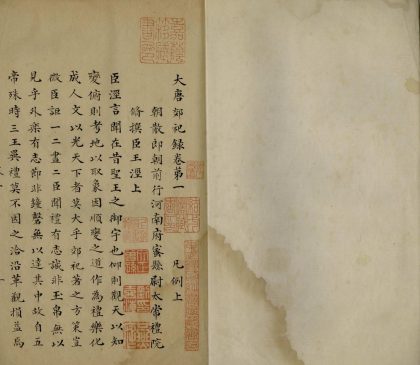 大唐郊祀錄卷第一　凡例上
朝散郎朝前行河南府密縣尉太常禮院
脩撰臣王涇上
臣涇言聞在昔聖王之御宇也仰則觀天以知
變俯則考地以取象因順變之道作為禮樂化
成人文以光天下者莫大乎郊祀著之方策豈
微臣詎一二盡之臣聞禮有志誠非玉帛無以
見乎外樂有志節非鍾磬無以達其中故自五
帝殊時三王異禮莫不因之洽沿革觀損益為